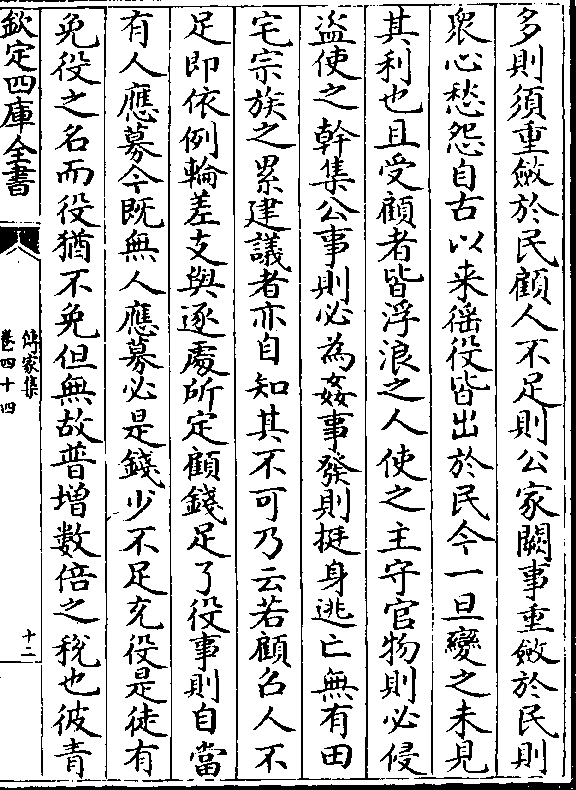 多則須重斂於民顧人不足則公家闕事重斂於民則
衆心愁怨自古以来徭役皆出於民今一旦變之未見
其利也且受顧者皆浮浪之人使之主守官物則必侵
盜使之幹集公事則必為姦事發則挺身逃亡無有田
宅宗族之累建議者亦自知其不可乃云若顧召人不
足即依例輪差支與逐處所定顧錢足了役事則自當
有人應募今既無人應募必是錢少不足充役是徒有
免役之名而役猶不免但無故普增數倍之稅也彼青
欽定四庫全書
傳家集
卷四十四
十二